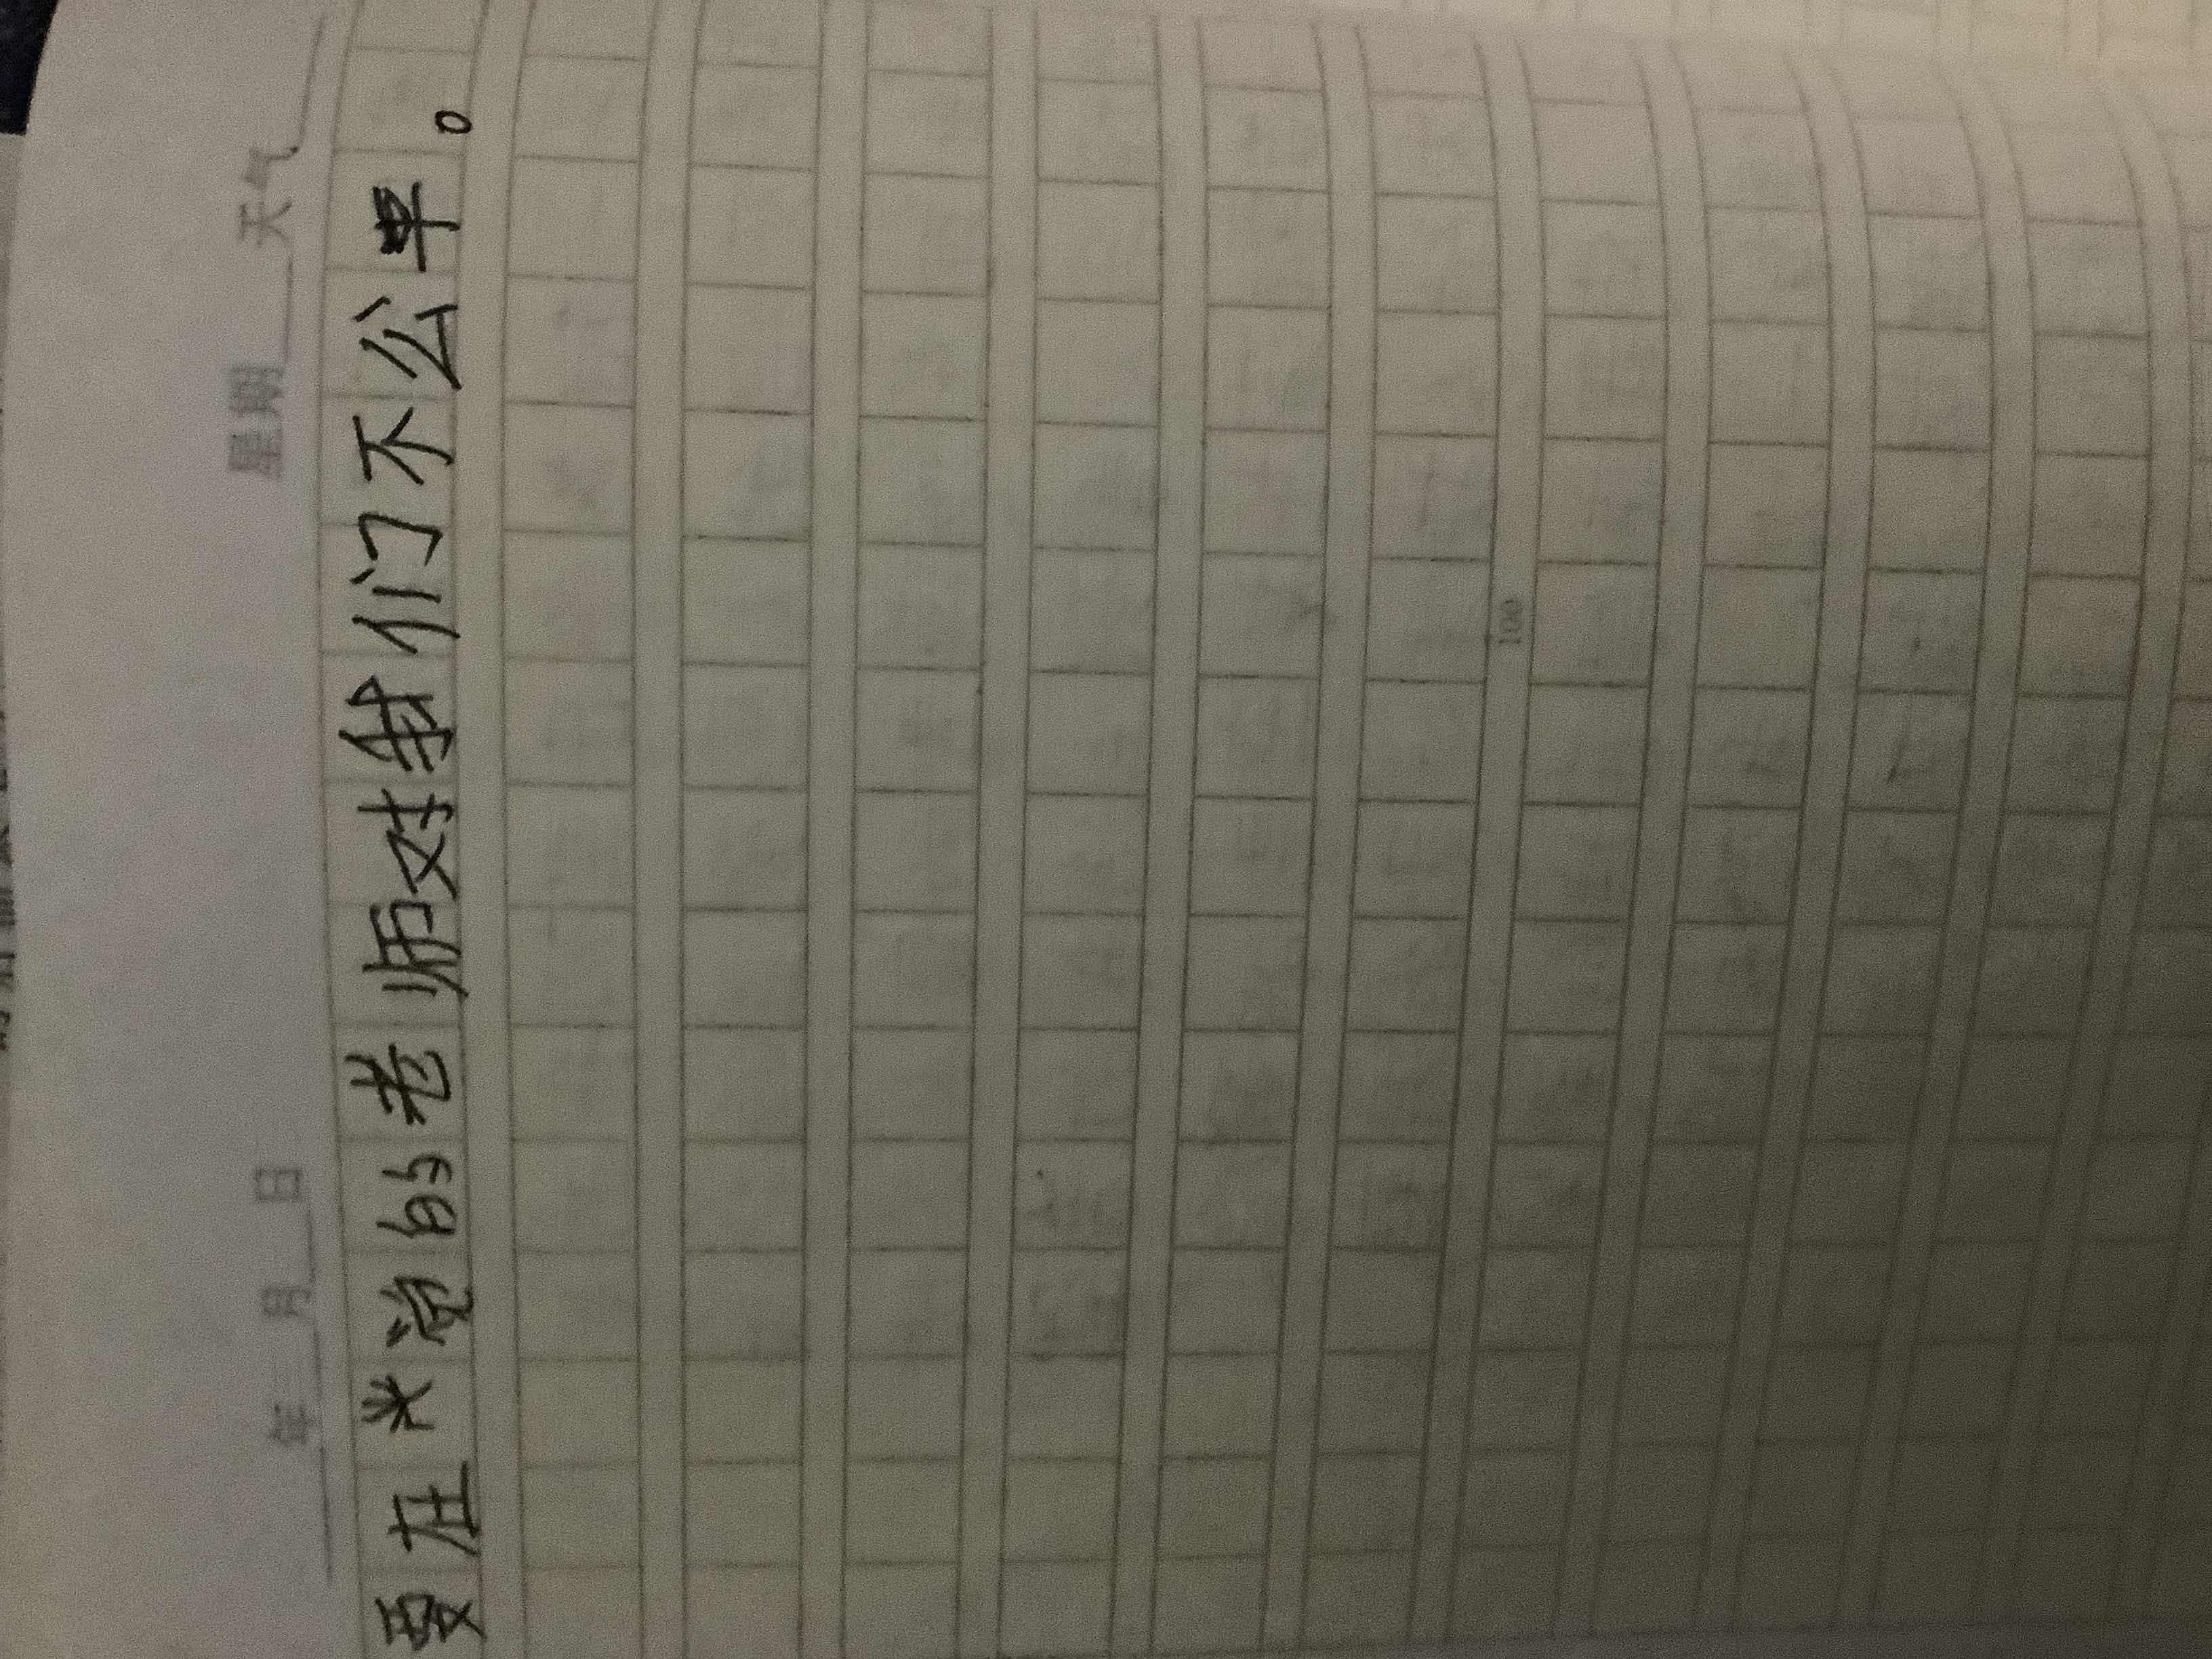 年 月 日 星期 天气
要在 的老师对我们不公平。
100